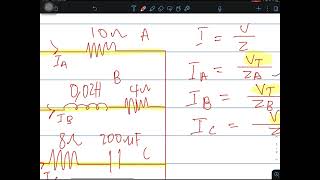 10Ω A
I_A
B
0.02H 4Ω
I_B
8Ω 200μF C
I = V/Z
I_A = V_T/Z_A
I_B = V_T/Z_B
I_C = V